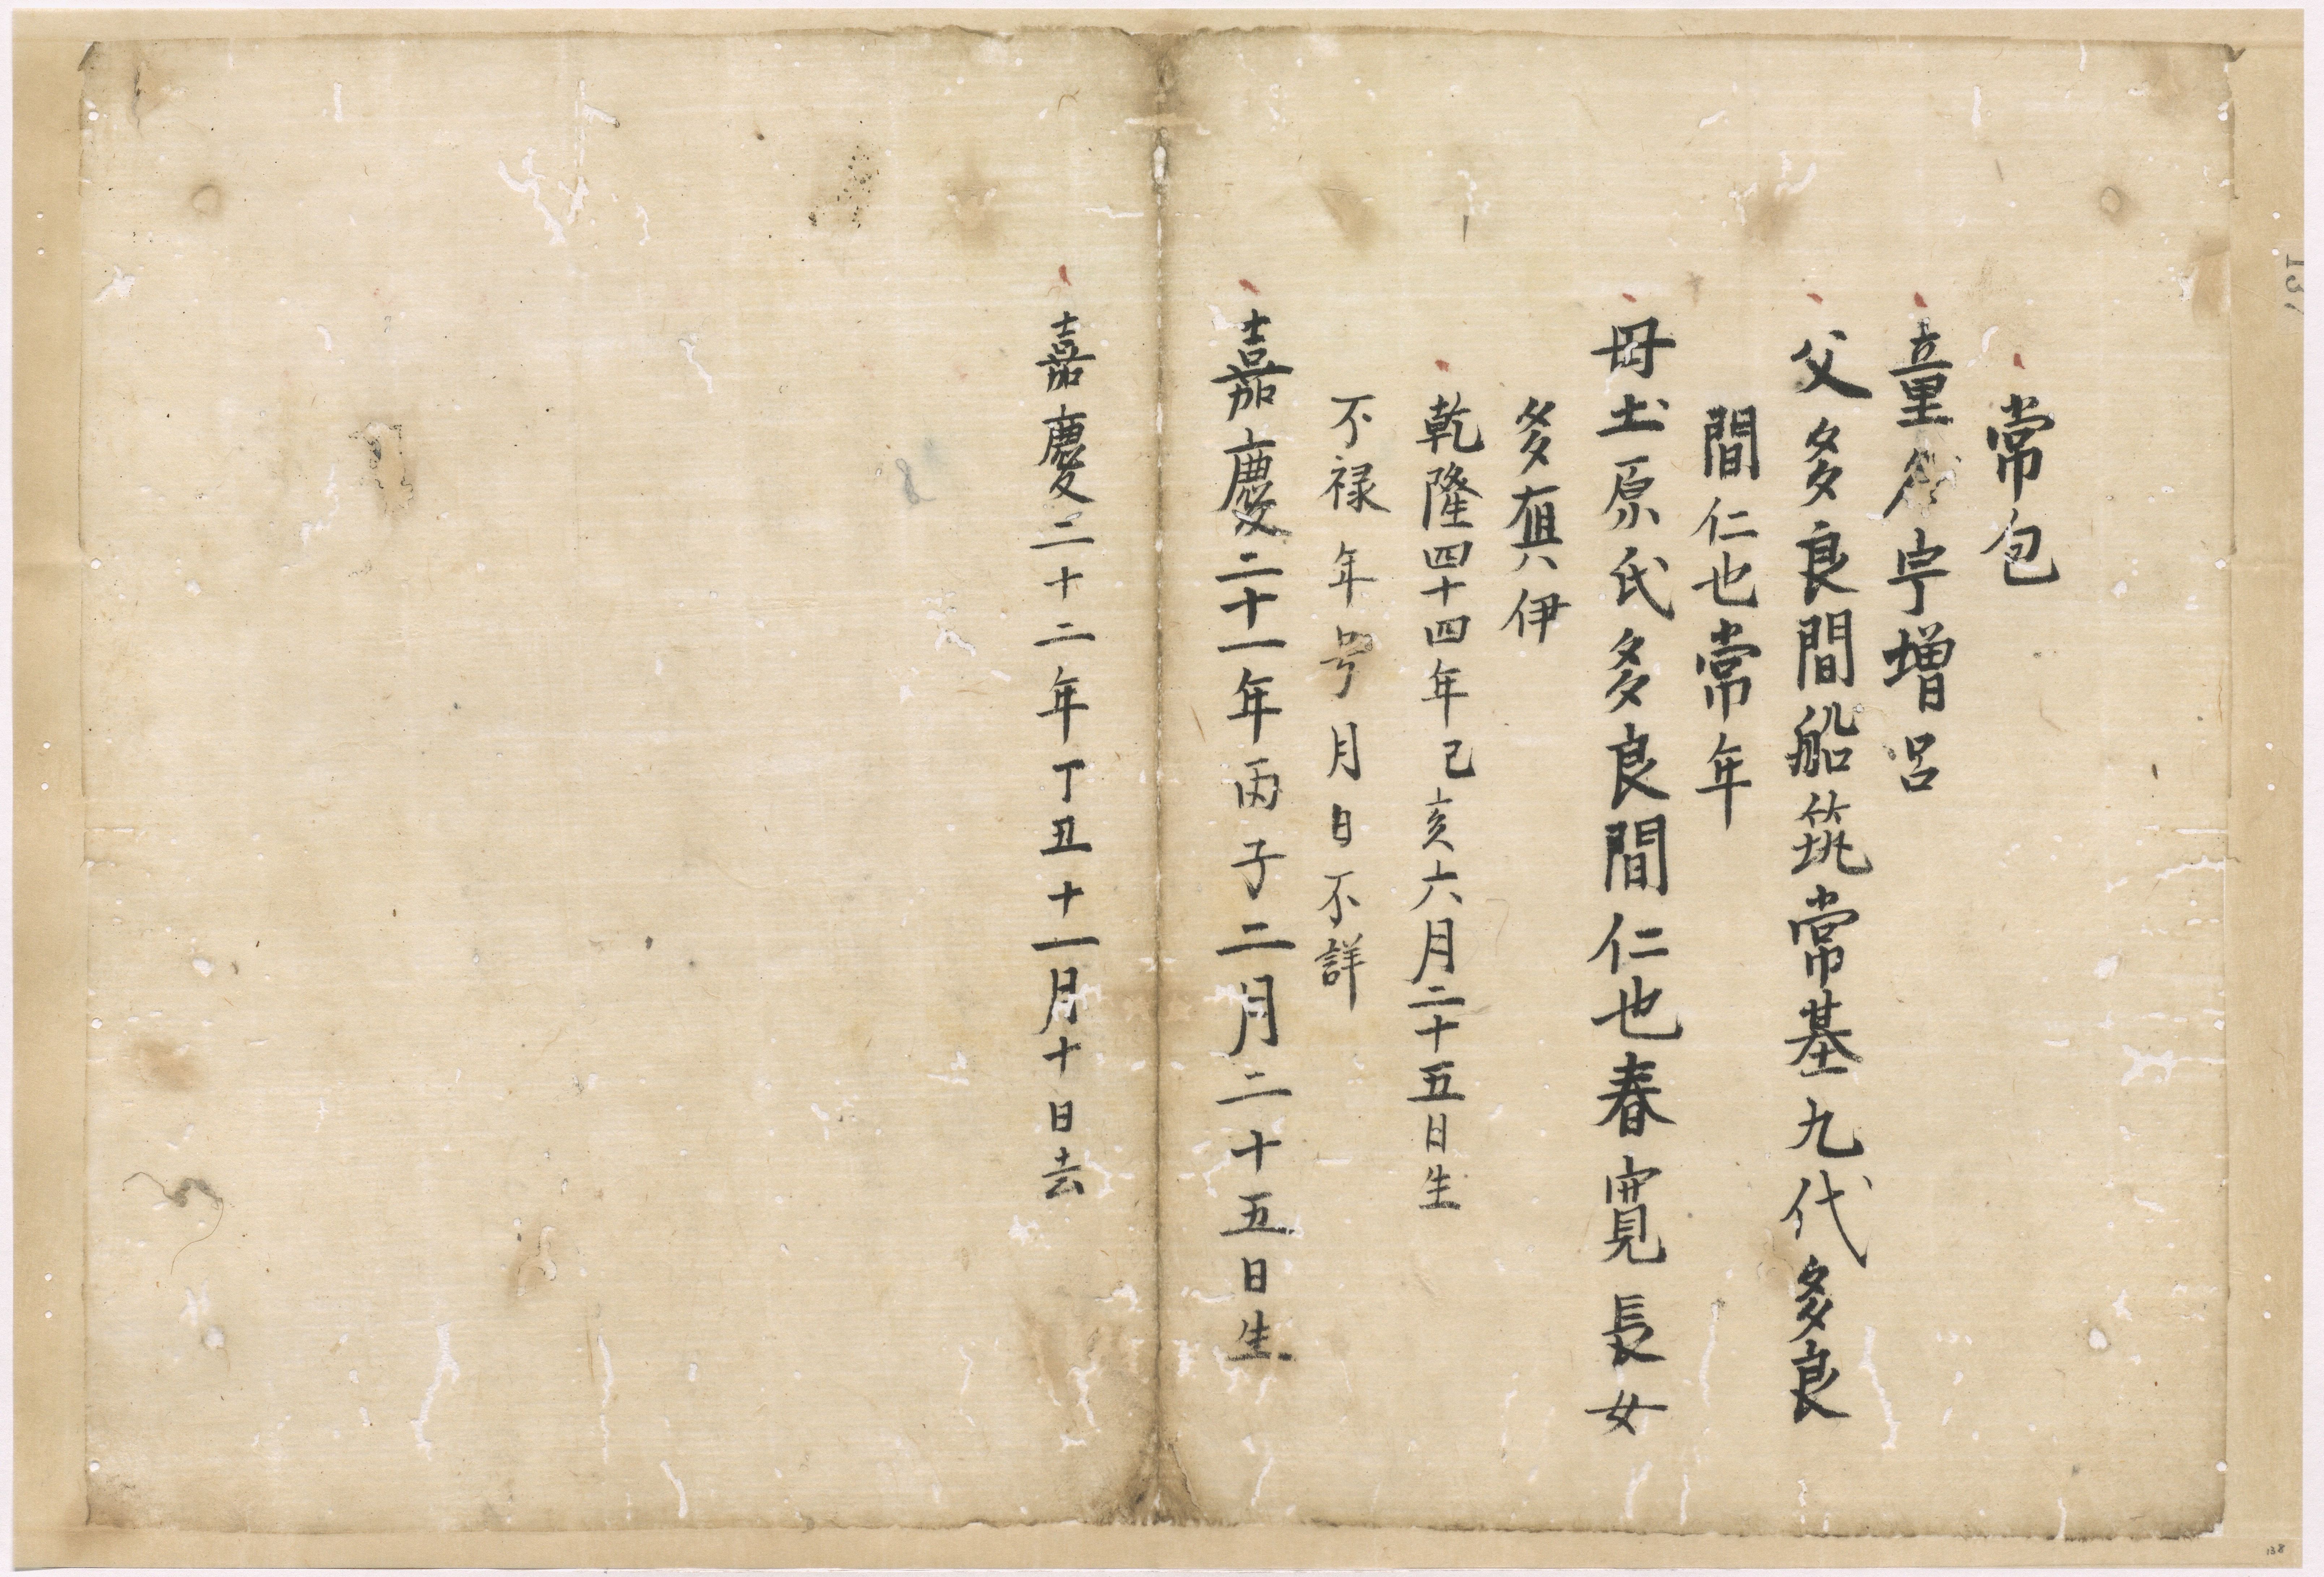 常包
童名宇增呂
父多良間船筑常基九代多良
間仁也常年
母土原氏多良間仁也春寛長女
多嶷伊
乾隆四十四年己亥六月二十五日生
不禄年号月日不詳
嘉慶二十一年丙子二月二十五日生
嘉慶二十二年丁丑十一月十日去
8
137
138